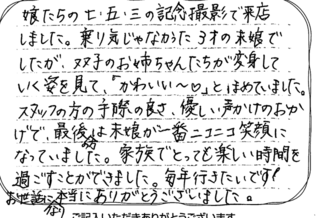 娘たちの七・五・三の記念撮影で来店
しました。乗り気じゃなかった3才の末娘で
したが、双子のお姉ちゃんたちが変身して
いく姿を見て、「かわいい～♡」とほめていました。
スタッフの方の手際の良さ、優しい声かけのおか
げで、最後には末娘が一番ニコニコ笑顔に
なっていました。家族でとっても楽しい時間を
過ごすことができました。毎年行きたいです!
お世話になり本当にありがとうございました。
ご記入いただきありがとうございます